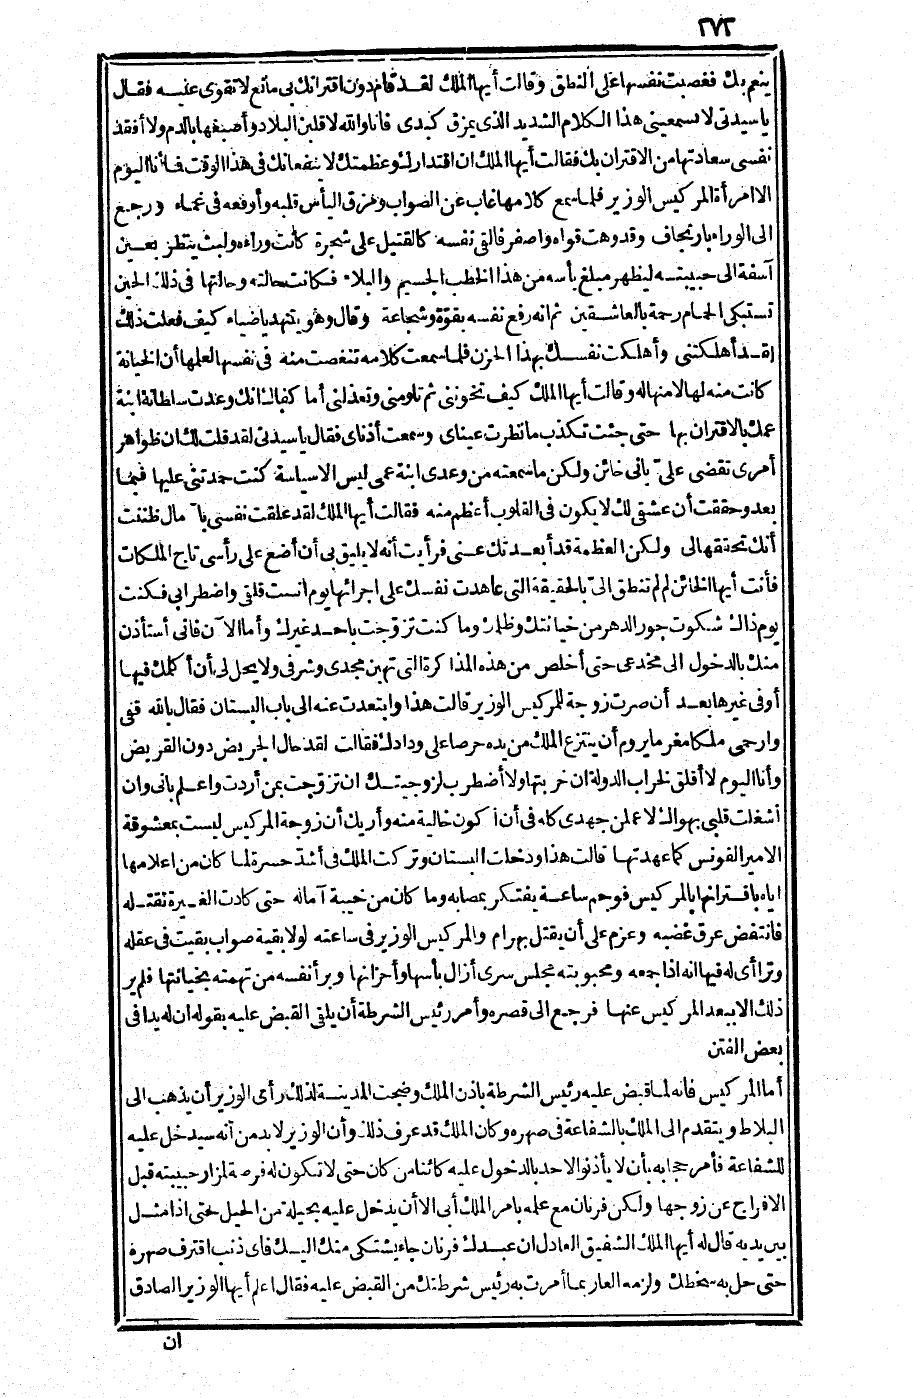 ٢٧٣
ينعم بك فغصبت نفسها على النطق وقالت أيها الملك لقد قام دون اقترانك بي مانع لا تقوى عليه فقال
يا سيدتي لا تسمعيني هذا الكلام الشديد الذي يمزق كبدي فانا والله لاقلبن البلاد وأصبغها بالدم ولا أفقد
نفسي سعادتها من الاقتران بك فقالت أيها الملك ان اقتدارك وعظمتك لا ينفعانك في هذا الوقت فأنا اليوم
الا امرأة المركيس الوزير فلما سمع كلامها غاب عن الصواب ومزق اليأس قلبه وأوقعه في غماء ورجع
الى الوراء بارتجاف وقد وهت قواه واصفر فالقى نفسه كالقتيل على شجرة كانت وراءه ولبث ينتظر بعين
آسفة الى حبيبته ليظهر مبلغ بأسه من هذا الخطب الجسيم والبلاء فكانت حالته وحالتها في ذلك الحين
تستبكي الحمام رحمة بالعاشقين ثم انه رفع نفسه بقوة وشجاعة وقال وهو يتنهد ياضياء كيف فعلت ذلك
لقد أهلكتني وأهلكت نفسك بهذا الحزن فلما سمعت كلامه تنغصت منه في نفسها لعلمها أن الخيانة
كانت منه لها لا منها له وقالت أيها الملك كيف تخونني ثم تلومني وتعذلني أما كفاك انك وعدت سلطانة ابنة
عمك بالاقتران بها حتى جئت تكذب ما نظرت عيناي وسمعت أذناي فقال يا سيدتي لقد قلت لك ان ظواهر
أمري تقضي علي باني خائن ولكن ما سمعته من وعدي ابنة عمي ليس الا سياسة كنت حمدتني عليها فيما
بعد وحققت أن عشقي لك لا يكون في القلوب أعظم منه فقالت أيها الملك لقد علقت نفسي بآمال ظننت
أنك تحققها لي ولكن العظمة قد أبعدتك عني فرأيت أنه لا يليق بي أن أضع على رأسي تاج الملكات
فأنت أيها الخائن لم لم تنطق الي بالحقيقة التي عاهدت نفسك على اجرائها يوم آنست قلقي واضطرابي فكنت
يوم ذاك شكوت جور الدهر من خيانتك وظلمك وما كنت تزوجت باحد غيرك وأما الآن فاني أستأذن
منك بالدخول الى مخدعي حتى أخلص من هذه المذاكرة التي تهين مجدي وشرفي ولا يحل لي أن أكلمك فيها
أو في غيرها بعد أن صرت زوجة للمركيس الوزير قالت هذا وابتعدت عنه الى باب البستان فقال بالله قفي
وارحمي ملكا مغرما يروم أن ينتزع الملك من يده حرصا على ودادك فقالت لقد حال الجريض دون القريض
وأنا اليوم لا أقلق لخراب الدولة ان خربتها ولا أضطرب لزوجيتك ان تزوجت بمن أردت واعلم باني وان
أشغلت قلبي بهواك لاعملن جهدي كله في أن أكون خالية منه وأريك أن زوجة المركيس ليست بمعشوقة
الامير الفونس كما عهدتها قالت هذا ودخلت البستان وتركت الملك في أشد حسرة لما كان من اعلامها
اياه باقترانها بالمركيس فوجم ساعة يفتكر بمصابه وما كان من خيبة آماله حتى كادت الغيرة تقتله
فانتفض عرق غضبه وعزم على أن يقتل بهرام والمركيس الوزير في ساعته لولا بقية صواب بقيت في عقله
وتراأى له فيها انه اذا جمعه ومحبوبته مجلس سرى أزال بأسها وأحزانها وبرأ نفسه من تهمته بخيانتها فلم ير
ذلك الا ببعد المركيس عنها فرجع الى قصره وأمر رئيس الشرطة أن يلقى القبض عليه بقوله ان له يدا في
بعض الفتن
أما المركيس فانه لما قبض عليه رئيس الشرطة باذن الملك وضجت المدينة لذلك رأى الوزير أن يذهب الى
البلاط ويتقدم الى الملك بالشفاعة في صهره وكان الملك قد عرف ذلك وأن الوزير لا بد من أنه سيدخل عليه
للشفاعة فأمر حجابه بأن لا يأذنوا لاحد بالدخول عليه كائنا من كان حتى لا تكون له فرصة لمزار حبيبته قبل
الافراج عن زوجها ولكن فرنان مع علمه بامر الملك أبى الا أن يدخل عليه بحيلة من الحيل حتى اذا مثل
بين يديه قال له أيها الملك الشفيق العادل ان عبدك فرنان جاء يشتكي منك اليك فاى ذنب اقترف صهره
حتى حل به سخطك ولزمه العار بما أمرت به رئيس شرطتك من القبض عليه فقال اعلم أيها الوزير الصادق
ان